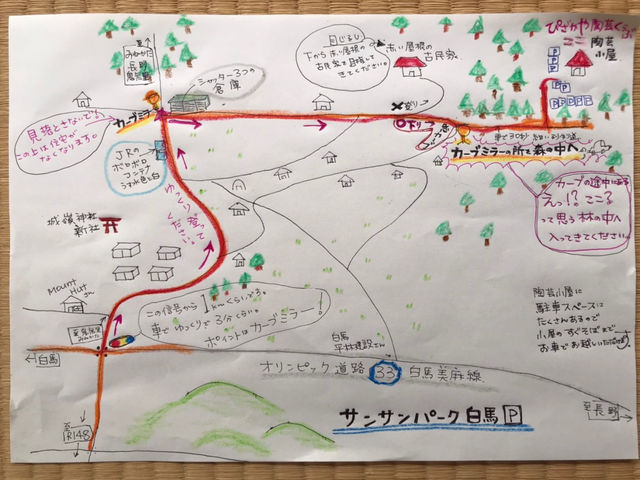 ぴざかや陶芸くらぶ
ここ
陶芸
小屋
P
P
P
P
P
P
P
P
P
至
みねかた
長野
鬼無里
シャッター3つの
倉庫
目じるし
下から赤い屋根の
古民家を目指して
きてください。
赤い屋根の
古民家
見落とさないで!
この上は住宅が
なくなります。
カーブミラー
JRの
ボロボロ
コンテナ
うす水色と白
ゆっくり登って
ください。
×登り
○下り
車で30秒
カーブミラーの所を森の中へ
カーブの途中にある
えっ!?ここ?
って思う林の中へ
入ってきてください
城嶺神社
新社
Mount
Hut
さん
この信号から1kmくらいです。
車でゆっくりで3分くらい。
ポイントはカーブミラー!
陶芸小屋に
駐車スペースは
たくさんあるので
小屋のすぐそばまで
お車でお越しいただけます。
白馬
平林建設さん
←白馬
オリンピック道路 33 白馬美麻線
サンサンパーク白馬 P
至
長野
至
R148